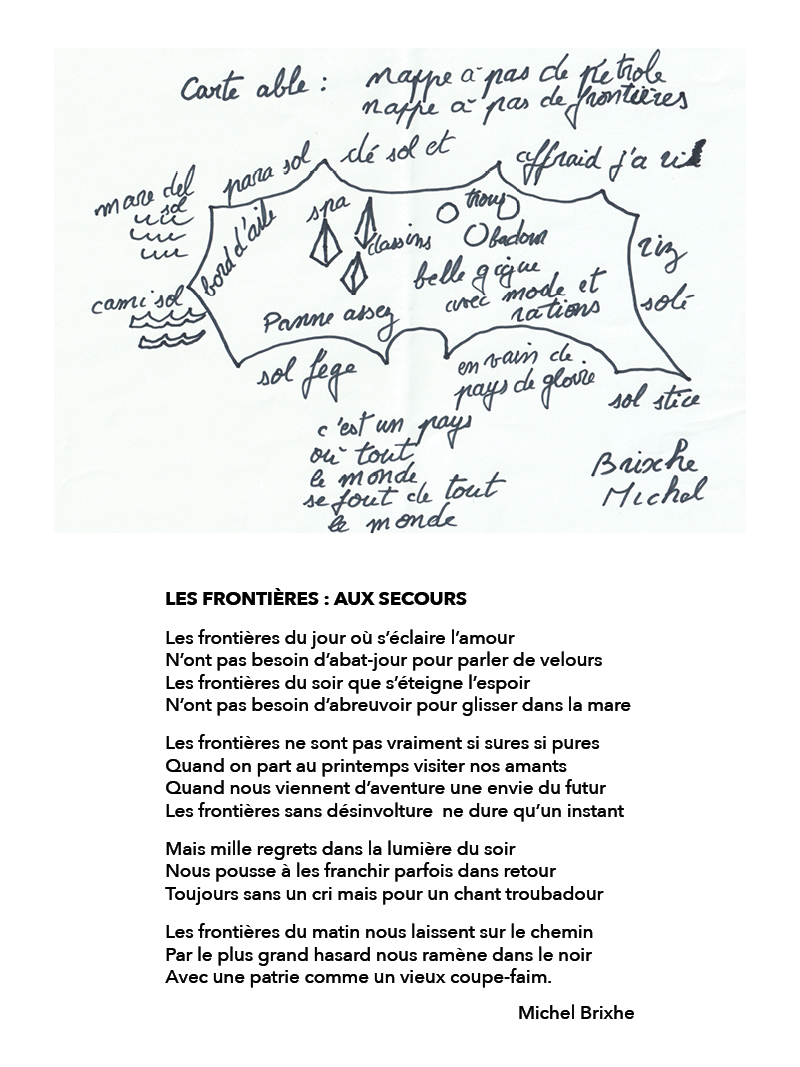 Carte able : nappe à pas de pétrole
nappe à pas de frontières
mare del
sol
para sol
clé sol et
affraid j'a ri
bord d'aile
spa
classins
trou
badour
riz
solé
cami sol
belle gigue
avec mode et
rations
Panne assez
sol fege
en vain de
pays de gloire
sol stice
c'est un pays
où tout
le monde
se fout de tout
le monde
Brixhe
Michel
LES FRONTIÈRES : AUX SECOURS
Les frontières du jour où s’éclaire l’amour
N’ont pas besoin d’abat-jour pour parler de velours
Les frontières du soir que s’éteigne l’espoir
N’ont pas besoin d’abreuvoir pour glisser dans la mare
Les frontières ne sont pas vraiment si sures si pures
Quand on part au printemps visiter nos amants
Quand nous viennent d’aventure une envie du futur
Les frontières sans désinvolture ne dure qu’un instant
Mais mille regrets dans la lumière du soir
Nous pousse à les franchir parfois dans retour
Toujours sans un cri mais pour un chant troubadour
Les frontières du matin nous laissent sur le chemin
Par le plus grand hasard nous ramène dans le noir
Avec une patrie comme un vieux coupe-faim.
Michel Brixhe